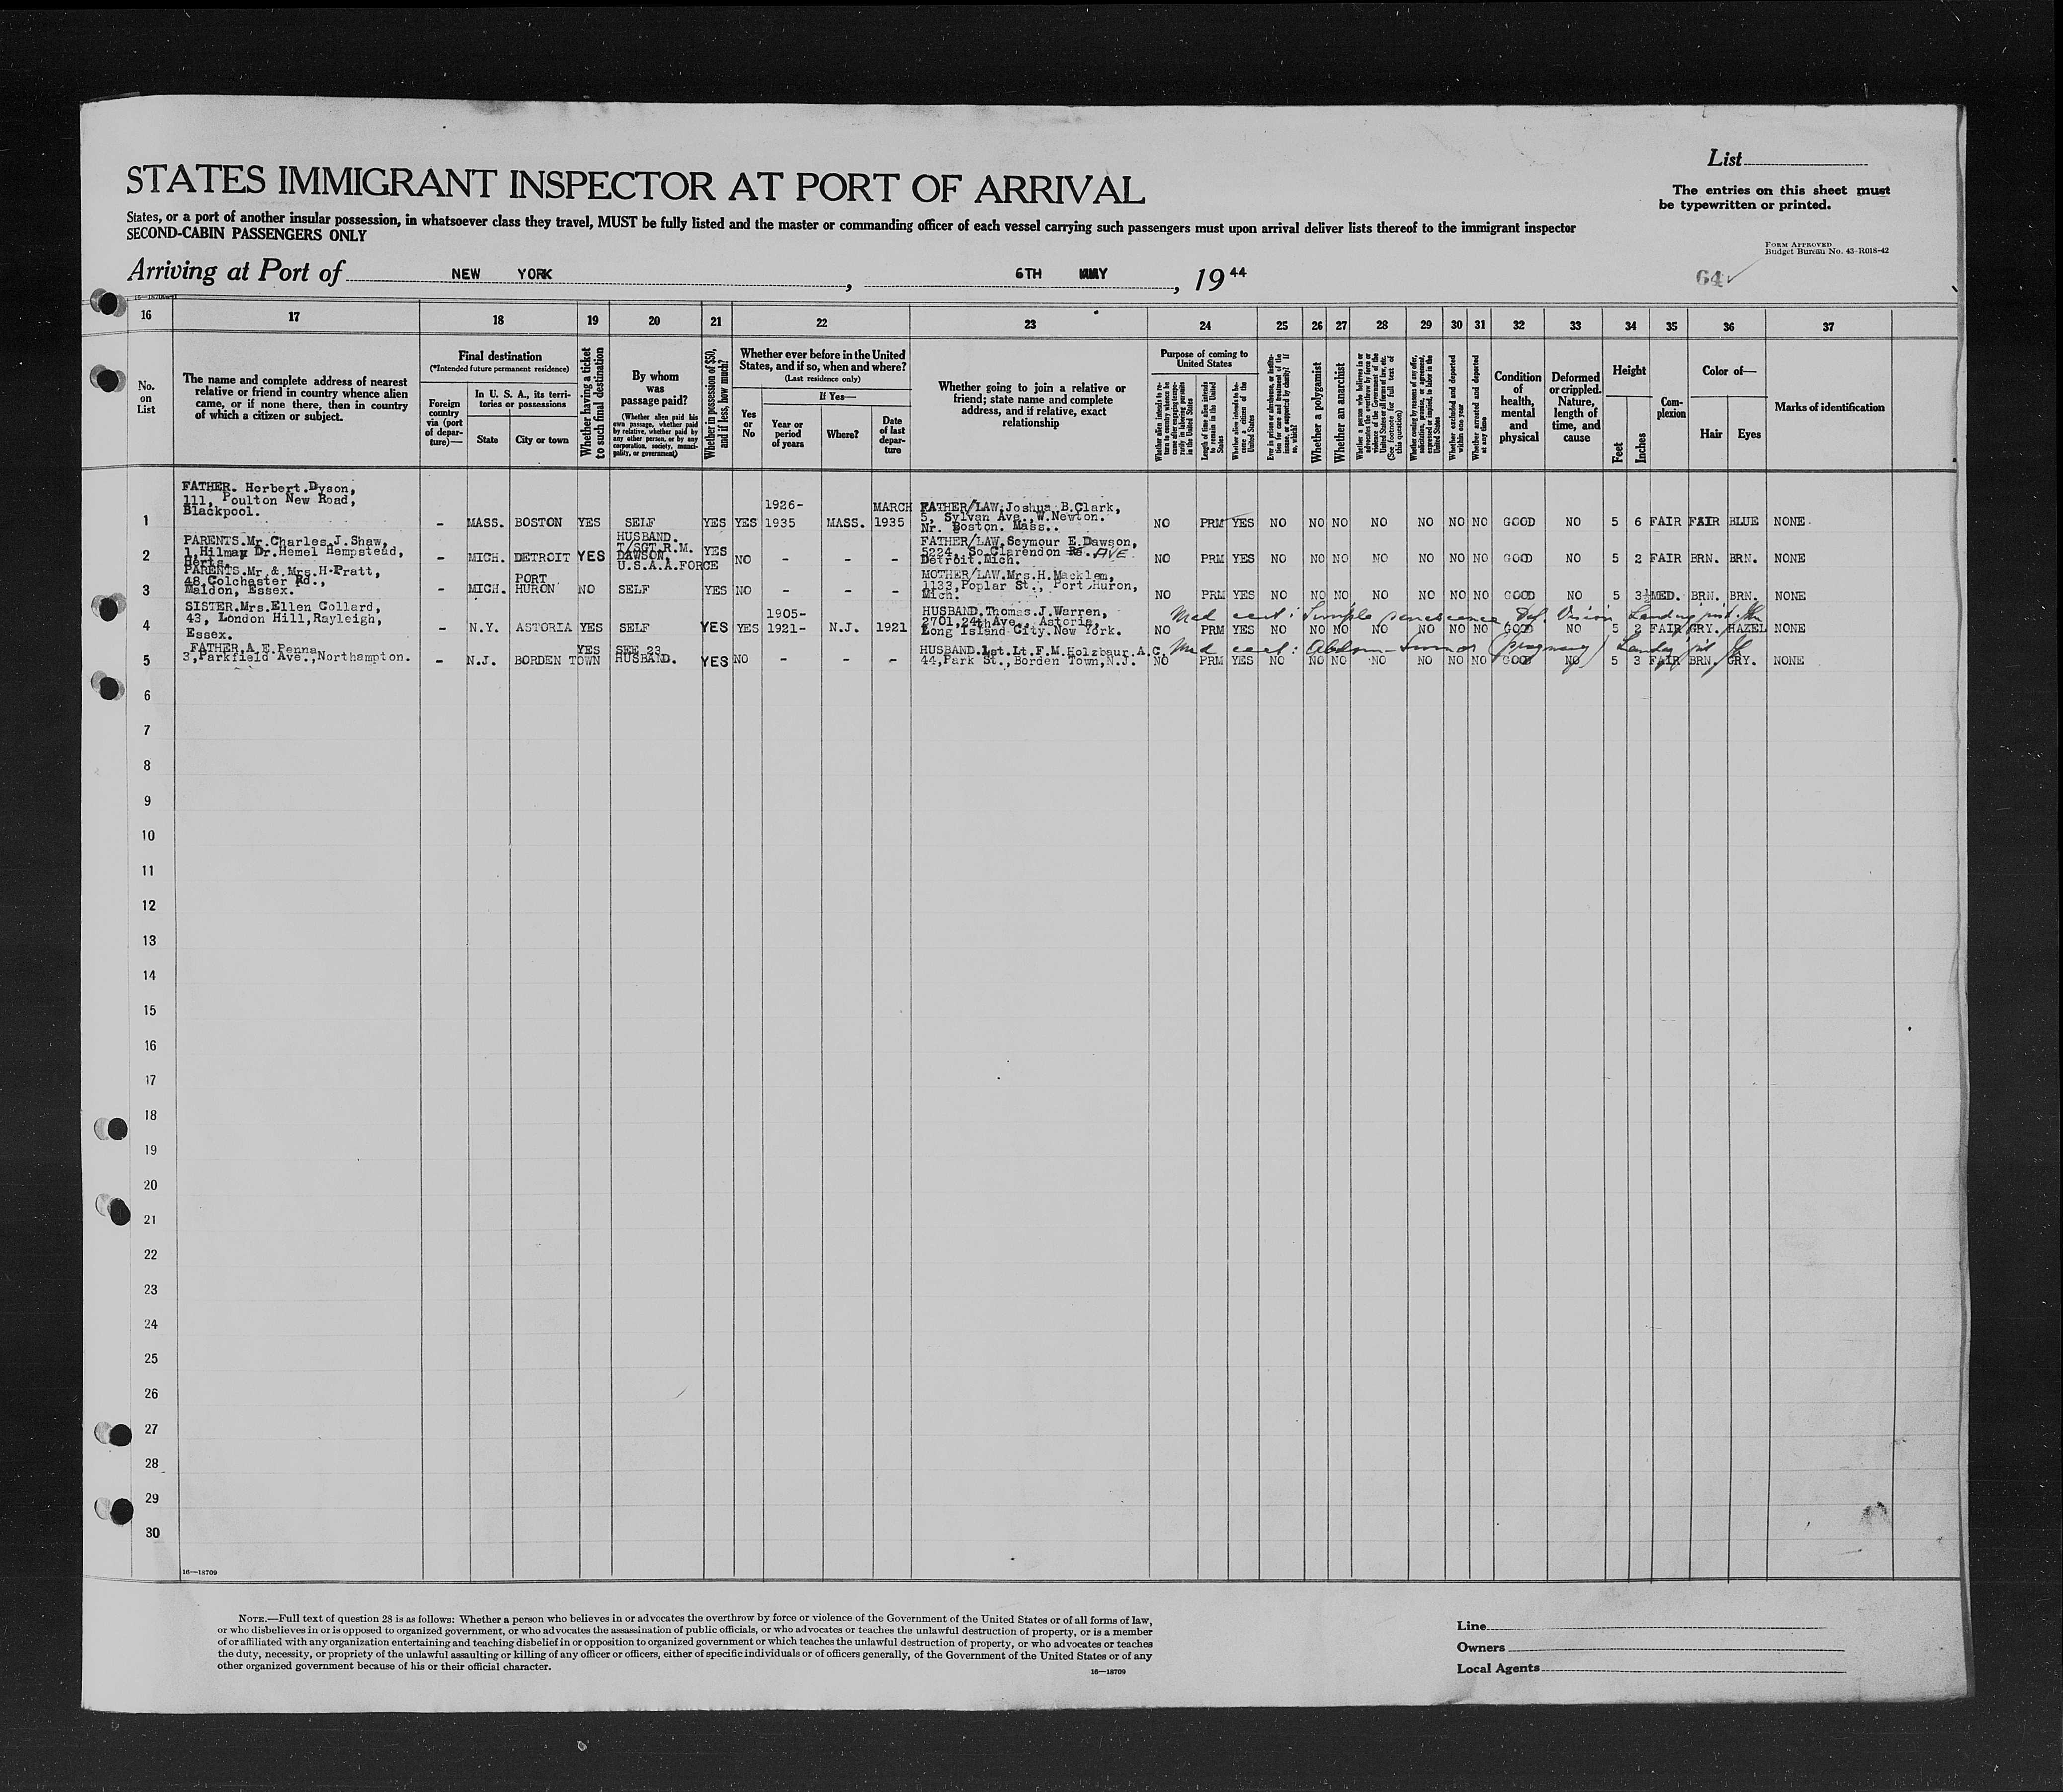 List
STATES IMMIGRANT INSPECTOR AT PORT OF ARRIVAL
The entries on this sheet must
be typewritten or printed.
States, or a port of another insular possession, in whatsoever class they travel, MUST be fully listed and the master or commanding officer of each vessel carrying such passengers must upon arrival deliver lists thereof to the immigrant inspector
SECOND-CABIN PASSENGERS ONLY
FORM APPROVED
Budget Bureau No. 43-R018-42
Arriving at Port of NEW YORK, 6TH MAY, 1944
64 ✓
16—18709
16 17 18 19 20 21 22 23 24 25 26 27 28 29 30 31 32 33 34 35 36 37
No. on List
The name and complete address of nearest
relative or friend in country whence alien
came, or if none there, then in country
of which a citizen or subject.
Final destination
(*Intended future permanent residence)
Foreign country via (port of departure)—
In U. S. A., its territories or possessions
State
City or town
Whether having a ticket to such final destination
By whom was passage paid?
(Whether alien paid his own passage, whether paid by relative, whether paid by any other person, or by any corporation, society, municipality, or government)
Whether in possession of $50, and if less, how much?
Whether ever before in the United States, and if so, when and where?
(Last residence only)
Yes or No
If Yes—
Year or period of years
Where?
Date of last departure
Whether going to join a relative or
friend; state name and complete
address, and if relative, exact
relationship
Purpose of coming to United States
Length of time alien intends to remain in the United States
Whether alien intends to become a citizen of the United States
Whether a polygamist
Whether an anarchist
(See footnote for full text of this question)
Whether excluded and deported within one year
Whether arrested and deported at any time
Condition of health, mental and physical
Deformed or crippled. Nature, length of time, and cause
Height
Feet
Inches
Complexion
Color of—
Hair
Eyes
Marks of identification
1 FATHER. Herbert.Dyson, 111, Poulton New Road, Blackpool. - MASS. BOSTON YES SELF YES YES 1926-1935 MASS. MARCH 1935 FATHER/LAW.Joshua B.Clark, 5, Sylvan Ave.,W.Newton. Nr. Boston. Mass.. NO PRM YES NO NO NO NO NO NO NO GOOD NO 5 6 FAIR FAIR BLUE NONE
2 PARENTS.Mr.Charles J.Shaw, 1,Hilmay Dr.Hemel Hempstead, Herts. - MICH. DETROIT YES HUSBAND. T/SGT.R.M. DAWSON, U.S.A.A.FORCE YES NO - - - FATHER/LAW.Seymour E.Dawson, 5224, So.Clarendon Rd. AVE. Detroit.Mich. NO PRM YES NO NO NO NO NO NO NO GOOD NO 5 2 FAIR BRN. BRN. NONE
3 PARENTS.Mr.& Mrs.H.Pratt, 48,Colchester Rd., Maldon, Essex. - MICH. PORT HURON NO SELF YES NO - - - MOTHER/LAW.Mrs.H.Macklem, 1133,Poplar St., Port Huron, Mich. NO PRM YES NO NO NO NO NO NO NO GOOD NO 5 3½ MED. BRN. BRN. NONE
Med cert: Simple senescence Def. Vision Landing
4 SISTER.Mrs.Ellen Collard, 43, London Hill,Rayleigh, Essex. - N.Y. ASTORIA YES SELF YES YES 1905-1921- N.J. 1921 HUSBAND.Thomas.J.Warren, 2701,24thAve., Astoria, Long Island City.New York. NO PRM YES NO NO NO NO NO NO NO GOOD NO 5 2 FAIR GRY. HAZEL NONE
Med cert: Abdom— tumor (pregnancy)
5 FATHER.A.E.Penna, 3,Parkfield Ave.,Northampton. - N.J. BORDEN TOWN YES SEE 23 HUSBAND. YES NO - - - HUSBAND.1st.Lt.F.M.Holzbaur.A.C. 44,Park St.,Borden Town,N.J. NO PRM YES NO NO NO NO NO NO NO GOOD NO 5 3 FAIR BRN. GRY. NONE
6
7
8
9
10
11
12
13
14
15
16
17
18
19
20
21
22
23
24
25
26
27
28
29
30
16—18709
NOTE.—Full text of question 28 is as follows: Whether a person who believes in or advocates the overthrow by force or violence of the Government of the United States or of all forms of law,
or who disbelieves in or is opposed to organized government, or who advocates the assassination of public officials, or who advocates or teaches the unlawful destruction of property, or is a member
of or affiliated with any organization entertaining and teaching disbelief in or opposition to organized government or which teaches the unlawful destruction of property, or who advocates or teaches
the duty, necessity, or propriety of the unlawful assaulting or killing of any officer or officers, either of specific individuals or of officers generally, of the Government of the United States or of any
other organized government because of his or their official character.
16—18709
Line
Owners
Local Agents